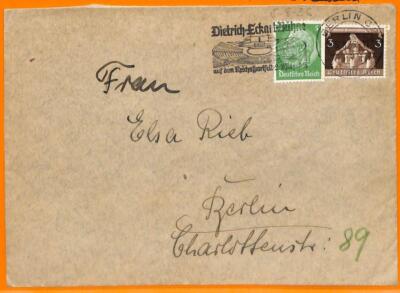 Dietrich-Eckart-Bühne
auf dem Reichssportfeld
BERLIN C
Deutsches Reich
3 3
Frau
Elsa Rieb
Berlin
Charlottenstr: 89